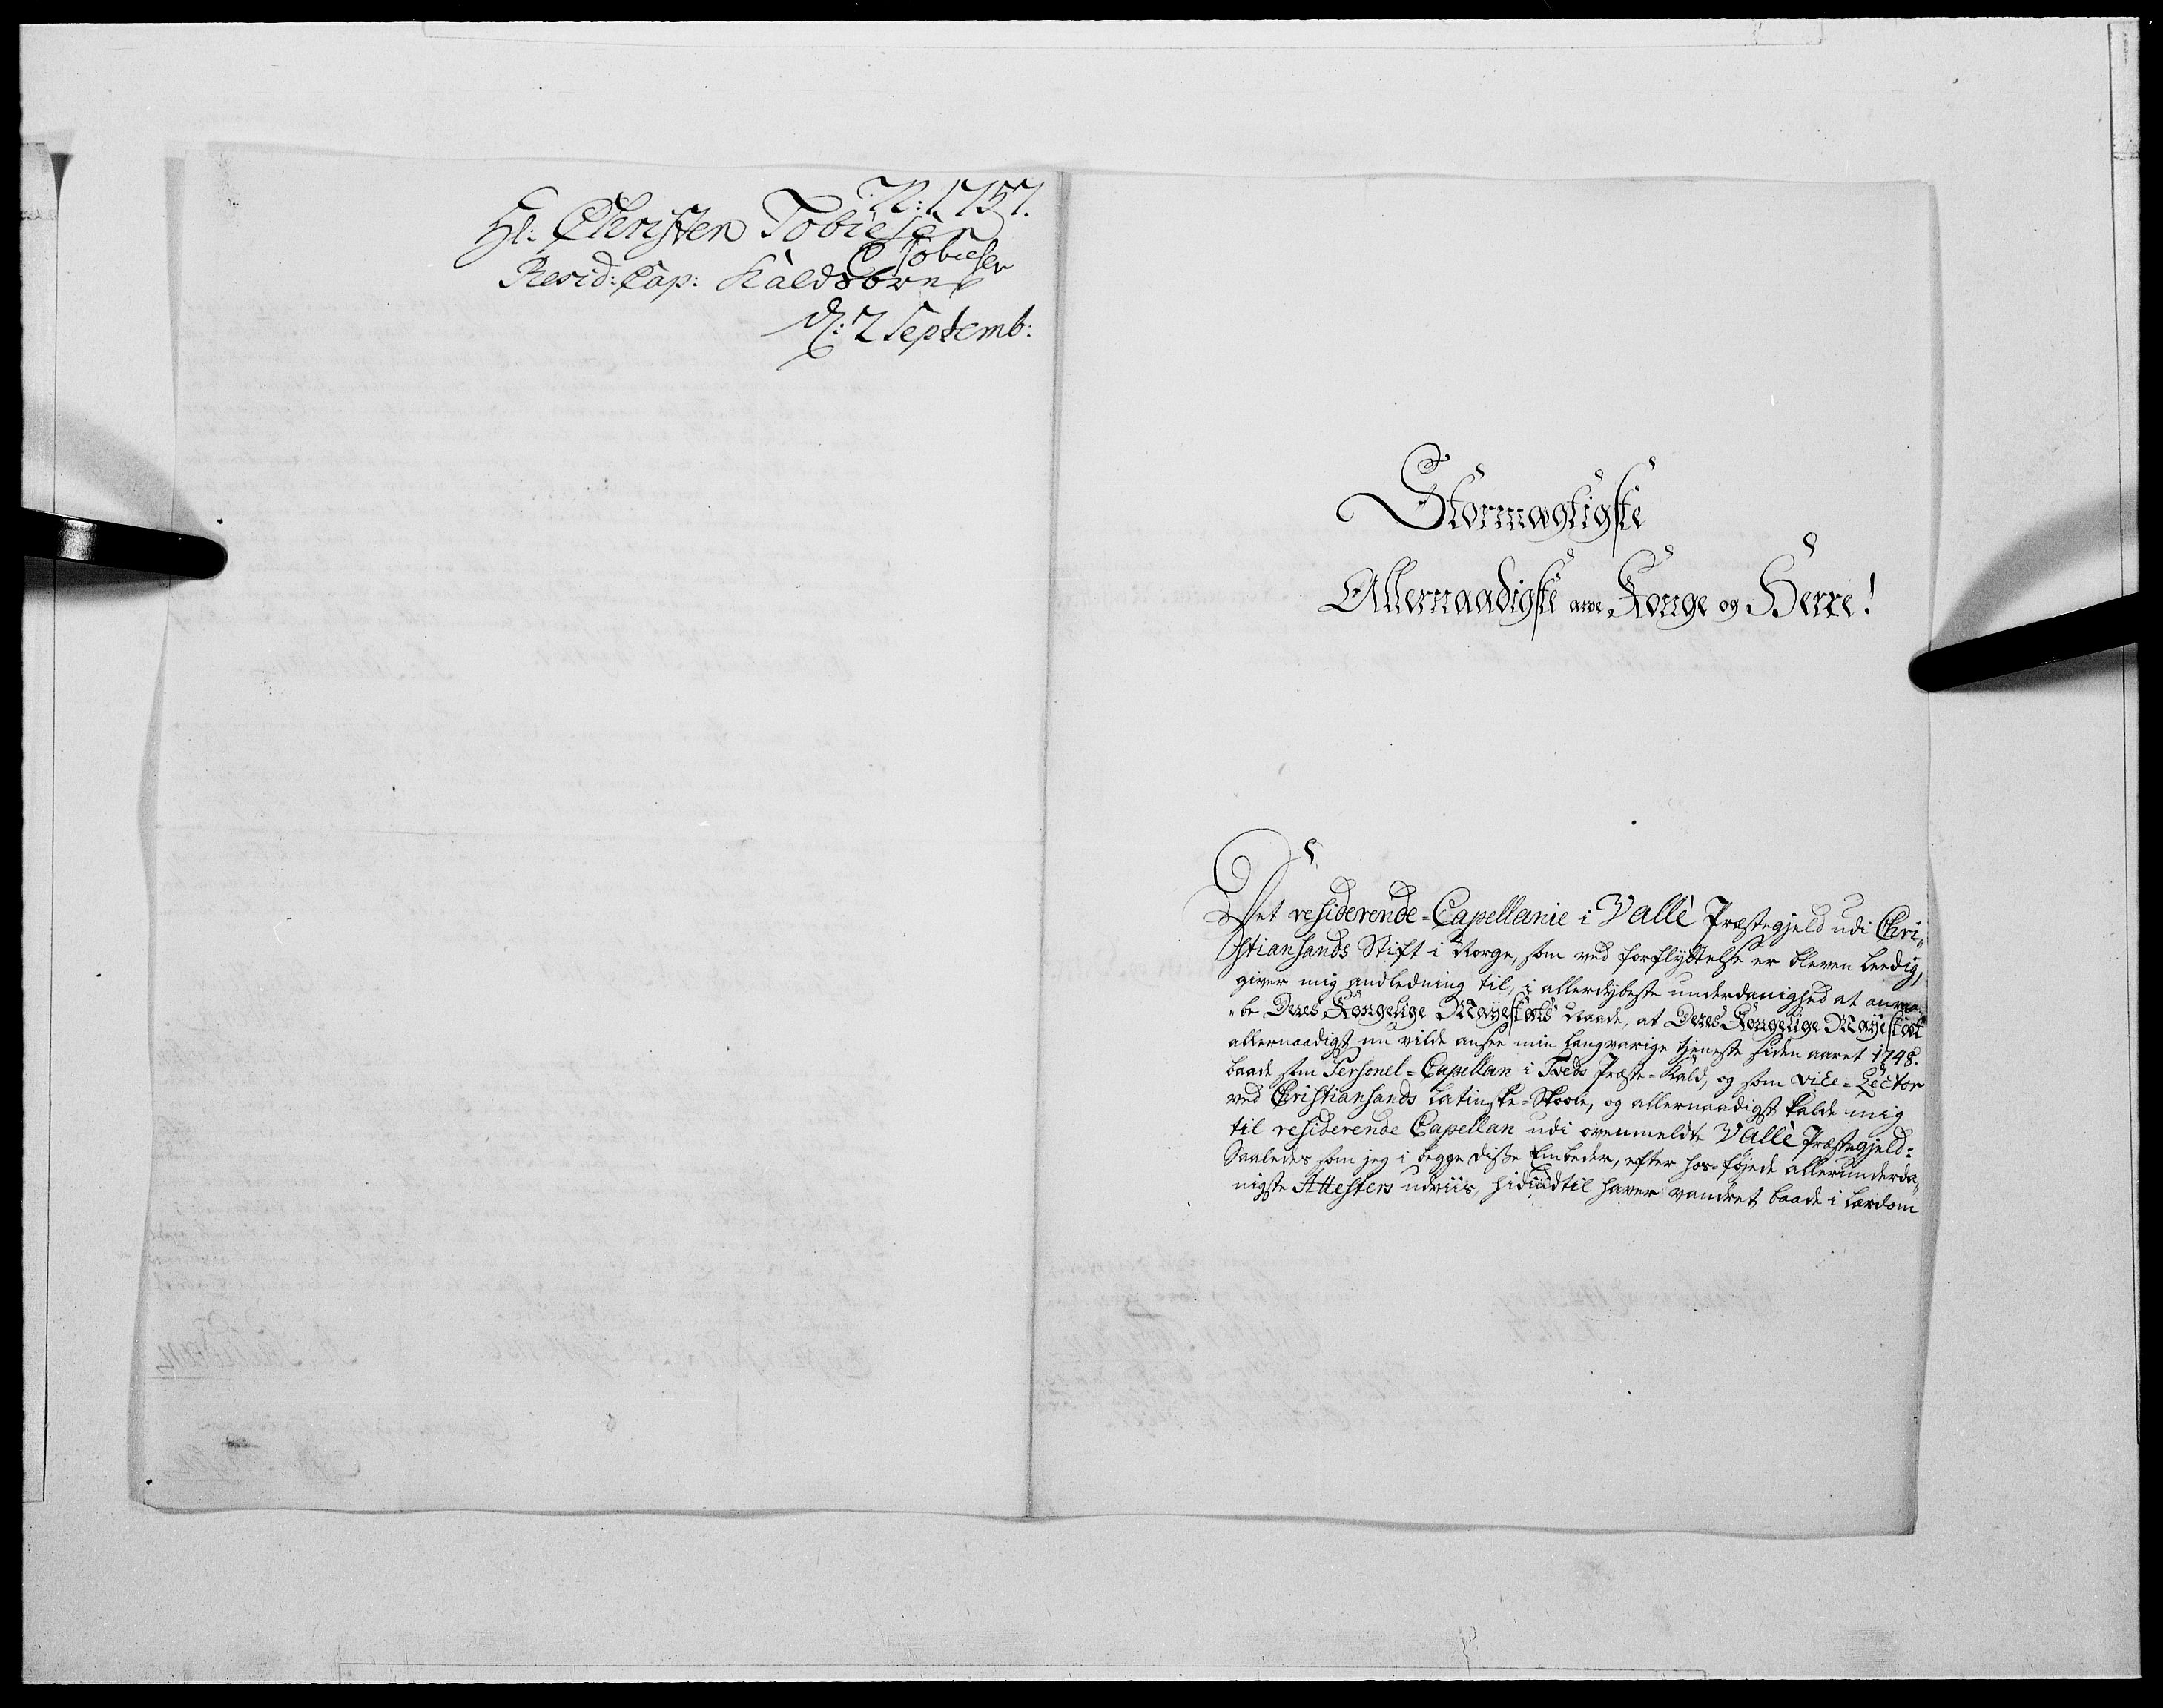 N: 1757.
Hl: Christen Tobiesen
C Tobiesen
Resid: Cap: Kaldsbrev
d: 2 Septemb:
Stormægtigste
Allernaadigste arve Konge og Herre!
Det residerende-Capellanie i Valle Præstegjeld udi Chri„
stiansands Stift i Norge, som ved forflyttelse er bleven leedig,
giver mig andledning til, i allerdybeste underdanighed at anraa„
„be Deres Kongelige Mayestæts Naade, at Deres Kongelige Mayestæt
allernaadigst nu vilde ansee min langvarige tjeneste siden aaret 1748.
baade som Personel-Capellan i Tveds Præste-Kald, og som vice-Lector
ved Christiansands Latinske-Skoole, og allernaadigst kalde mig
til residerende Capellan udi ovenmeldte Valle Præstegjeld:
Saaledes som jeg i begge disse Embeder, efter hos-føjede allerunderda„
nigste Attesters udviis, hidindtil haver vandret baade i Lærdom